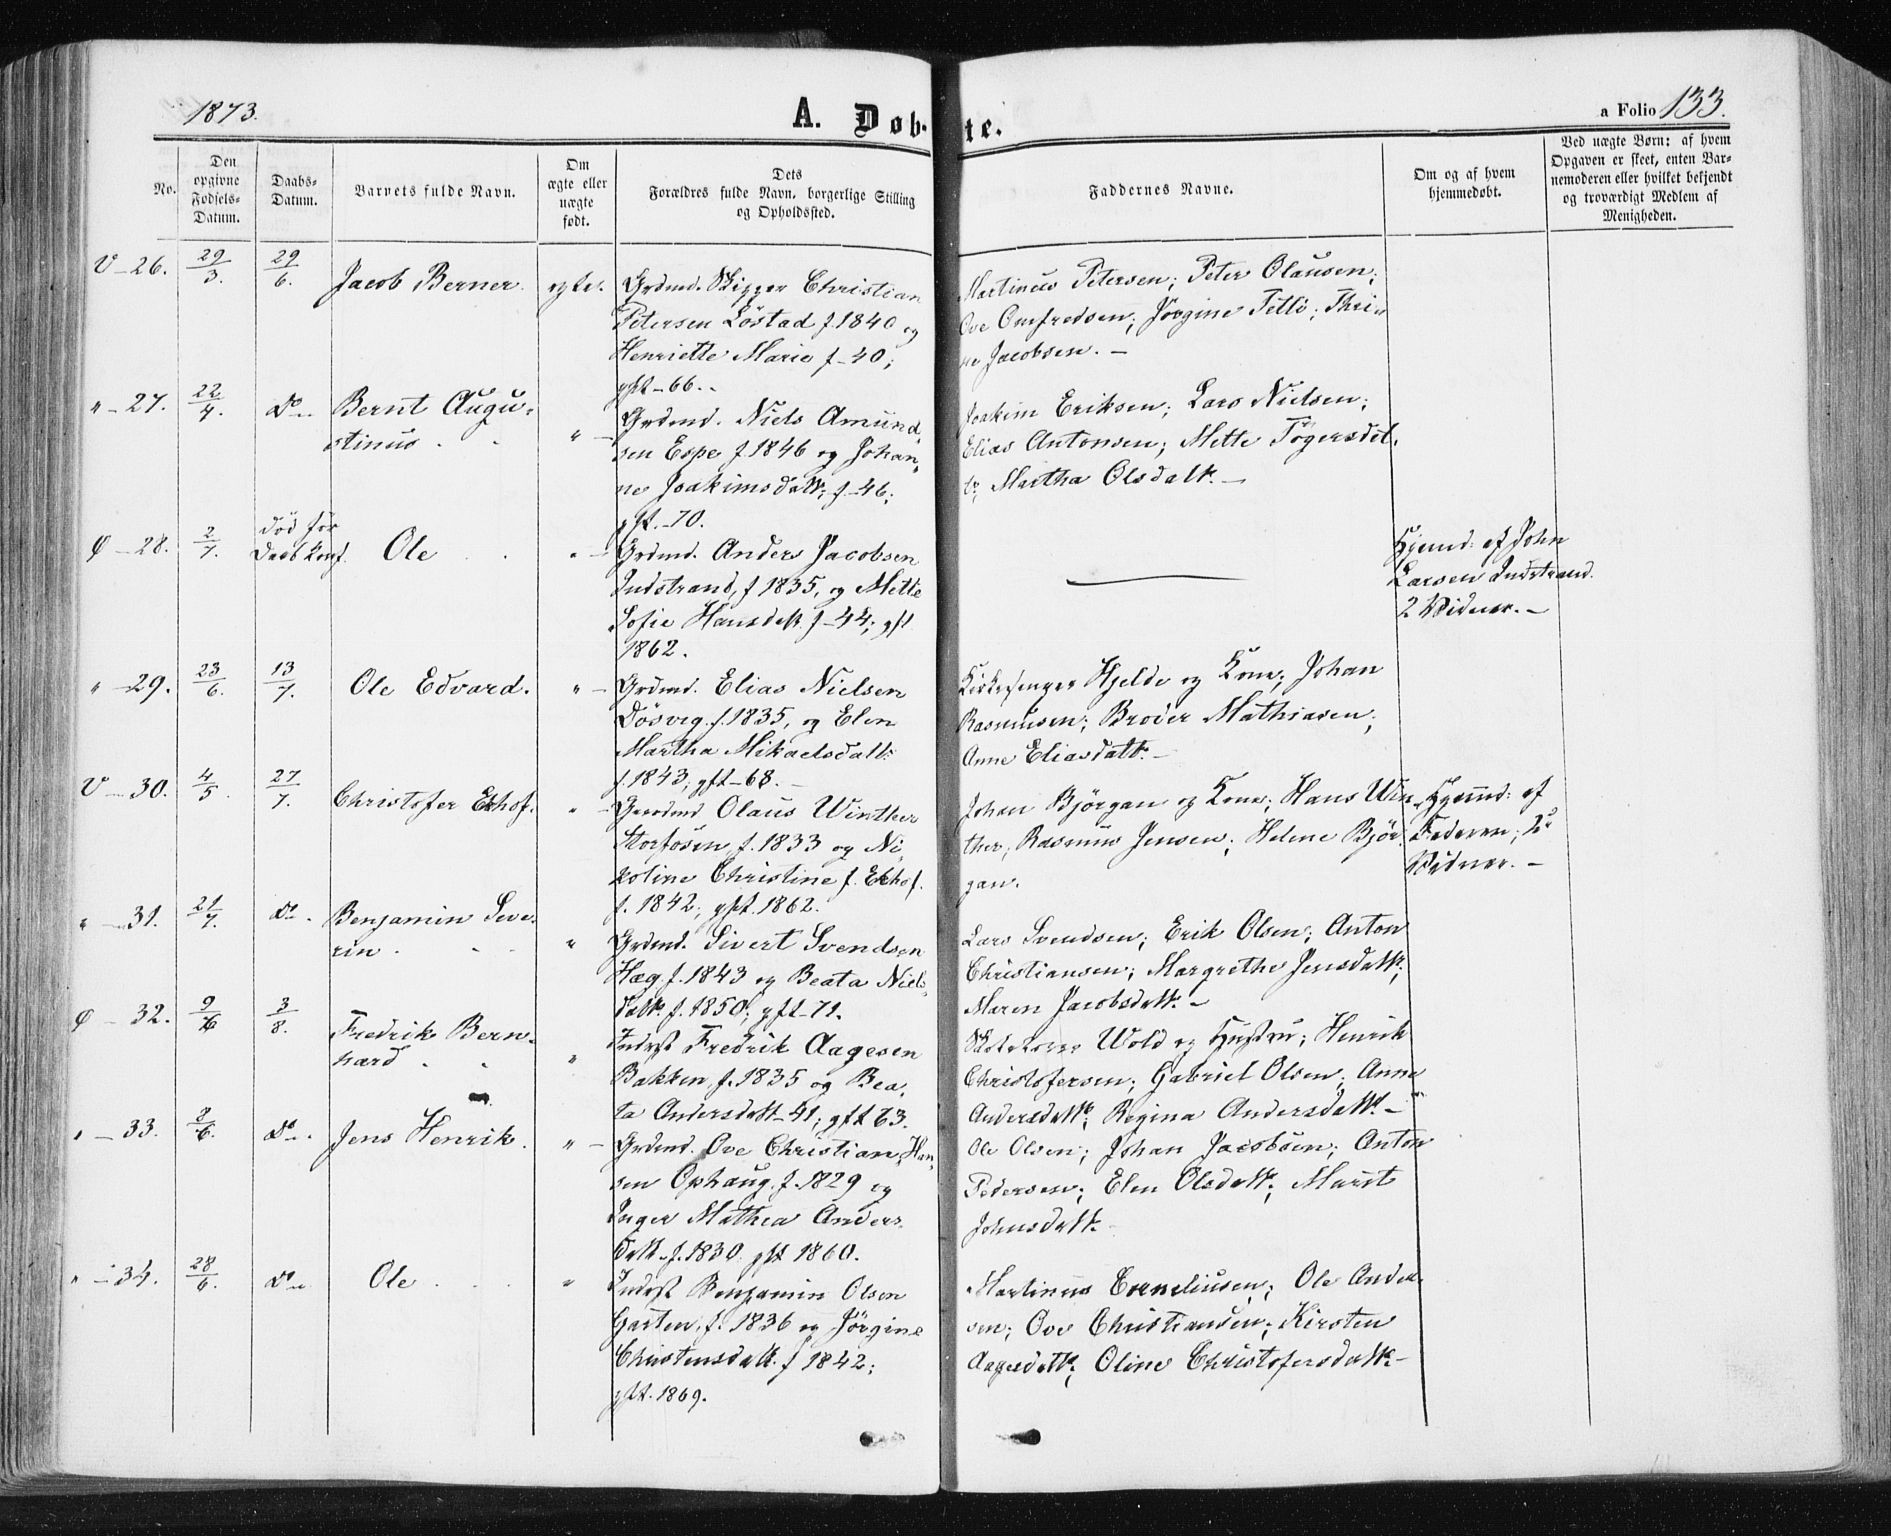 1873.
A. Døbte.
a Folio 133.
No.
Den opgivne Fødsels-Datum.
Daabs-Datum.
Barnets fulde Navn.
Om ægte eller uægte født.
Dets Forældres fulde Navn, borgerlige Stilling og Opholdssted.
Faddernes Navne.
Om og af hvem hjemmedøbt.
Ved uægte Børn: af hvem Opgaven er skeet, enten Barnemoderen eller hvilket bekjendt og troværdigt Medlem af Menigheden.
V - 26. 29/3. 29/6. Jacob Berner. egte.
Grdmd. Skipper Christian
Petersen Löstad f. 1840 og
Henriette Marie f - 40;
gft - 66.
Martinus Petersen; Peter Olausen;
Ove Omfredsen; Jörgine Tetlie; Thri-
ne Jacobsen. -
" - 27. 22/4. Do. Bernt Augu-
stinus. "
Grdmd. Niels Amund-
sen Espe f. 1846 og Johan-
ne Joakimsdatt. f - 46;
gft. - 70.
Joakim Eriksen; Lars Nielsen;
Elias Antonsen; Mette Tøgersdat-
tr; Martha Olsdatt. -
Ø - 28. 2/7. død før
Daab konf. Ole "
Grdmd. Anders Jacobsen
Indstrand, f 1835, og Mette
Sofie Hansdatt. f - 44; gft
1862.
Hjemd. af John
Larsen Indstrand.
2 Vidner. -
" - 29. 23/6. 13/7. Ole Edvard. "
Grdmd. Elias Nielsen
Dösvig f. 1835, og Elen
Martha Mikaelsdatt.
f. 1843; gft - 68. -
Kirkesanger Hjelde og Kone; Johan
Rasmusen; Broder Mathiasen;
Anne Eliasdatt. -
V - 30. 4/5. 27/7. Christofer Ekhof. "
Gaardmd Olaus Winther
Storfosen, f. 1833 og Ni-
koline Christine f. Ekhof.
f. 1842; gft. 1862.
Johan Björgan og Kone; Hans Win-
ther; Rasmus Jensen; Helene Björ-
gan.
Hjemd: af
Faderen; 2
Vidner. -
" - 31. 21/7. Do. Benjamin Seve-
rin. "
Grdmd. Sivert Svendsen
Hæg, f. 1843 og Beata Niels-
datt. f. 1850; gft - 71.
Lars Svendsen; Erik Olsen; Anton
Christiansen; Margrethe Jensdatt;
Maren Jacobsdatt. -
Ø - 32. 9/6 3/8. Fredrik Bern-
hard. "
Indst Fredrik Aagesen
Bakken, f. 1835 og Bea-
ta Andersdatt - 41; gft 63.
Wold og Hustru; Henrik
Christofersen; Gabriel Olsen; Anne
Andersdatt; Regina Andersdatt. -
" - 33. 8/6. Do. Jens Henrik. "
Grdmd. Ove Christian Han-
sen Ophaug, f. 1829 og
Inger Mathea Anders-
datt - f. 1830. gft 1860.
Ole Olsen; Johan Jacobsen; Anton
Pedersen; Elen Olsdatt; Marit
Johnsdatt.
" - 34. 28/6. Do. Ole "
Indst Benjamin Olsen
Garten, f. 1836 og Jörgine
Christensdatt. f 1842;
gft. 1869.
Martinus Corneliusen; Ole Ander-
sen; Ove Christiansen; Kirsten
Aagesdatt; Oline Christofersdatt. -